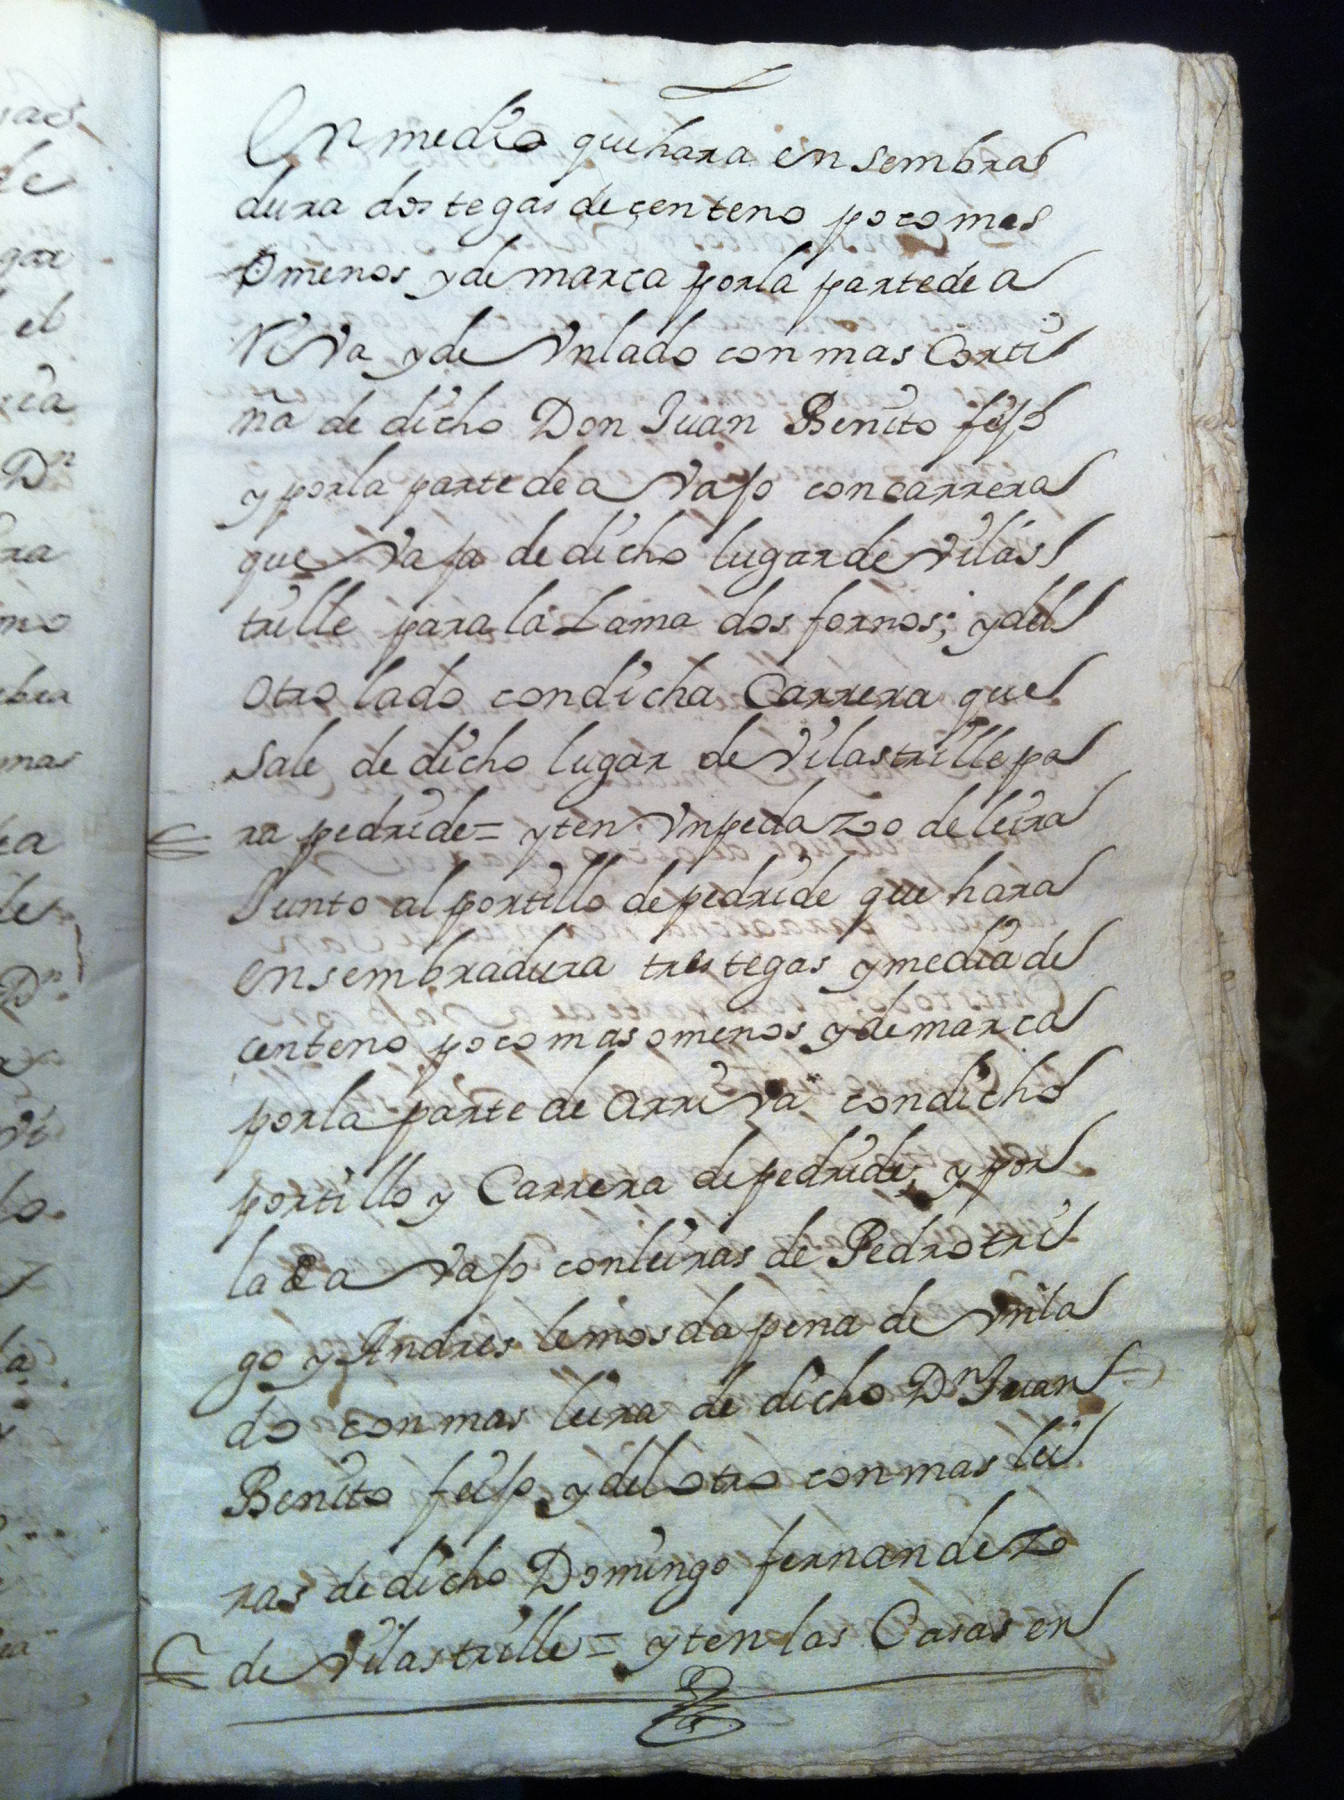 En medio que hara en sembra
dura dos tegas de çenteno poco mas
o menos y de marca por la parte de a
Riva y de Vn lado con mas Corti
ña de dicho Don Juan Benito feijo
y por la parte de a Vajo con carrera
que Vaja de dicho lugar de Vilas
trille para la Lama dos fornos; y del
otro lado con dicha Carrera que
sale de dicho lugar de Vilastrille pa
ra pedride = yten Vn pedazo de leira
Junto al portillo de pedride que hara
en sembradura tres tegas y media de
centeno poco mas o menos y de marca
por la parte de arriva con dicho
portillo y Carrera de pedride; y por
la de a Vajo con leiras de Pedro tri
go y Andres lemos da pena de Vn la
do con mas leira de dicho Dn Juan
Benito feijo y del otro con mas lei
ras de dicho Domingo fernandez
de Vilastrille = yten las Casas en
sas
de
gar
el
Dn
ra
mas
de
Dn